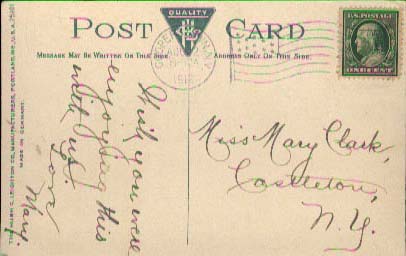 POST CARD
QUALITY
MESSAGE MAY BE WRITTEN ON THIS SIDE.
ADDRESS ONLY ON THIS SIDE.
U.S. POSTAGE
ONE CENT
THE HUGH C. LEIGHTON CO., MANUFACTURERS, PORTLAND, ME., U.S.A.
MADE IN GERMANY.
Wish you were
enjoying this
with us.
Love
Mary.
Miss Mary Clark,
Castleton,
N. Y.